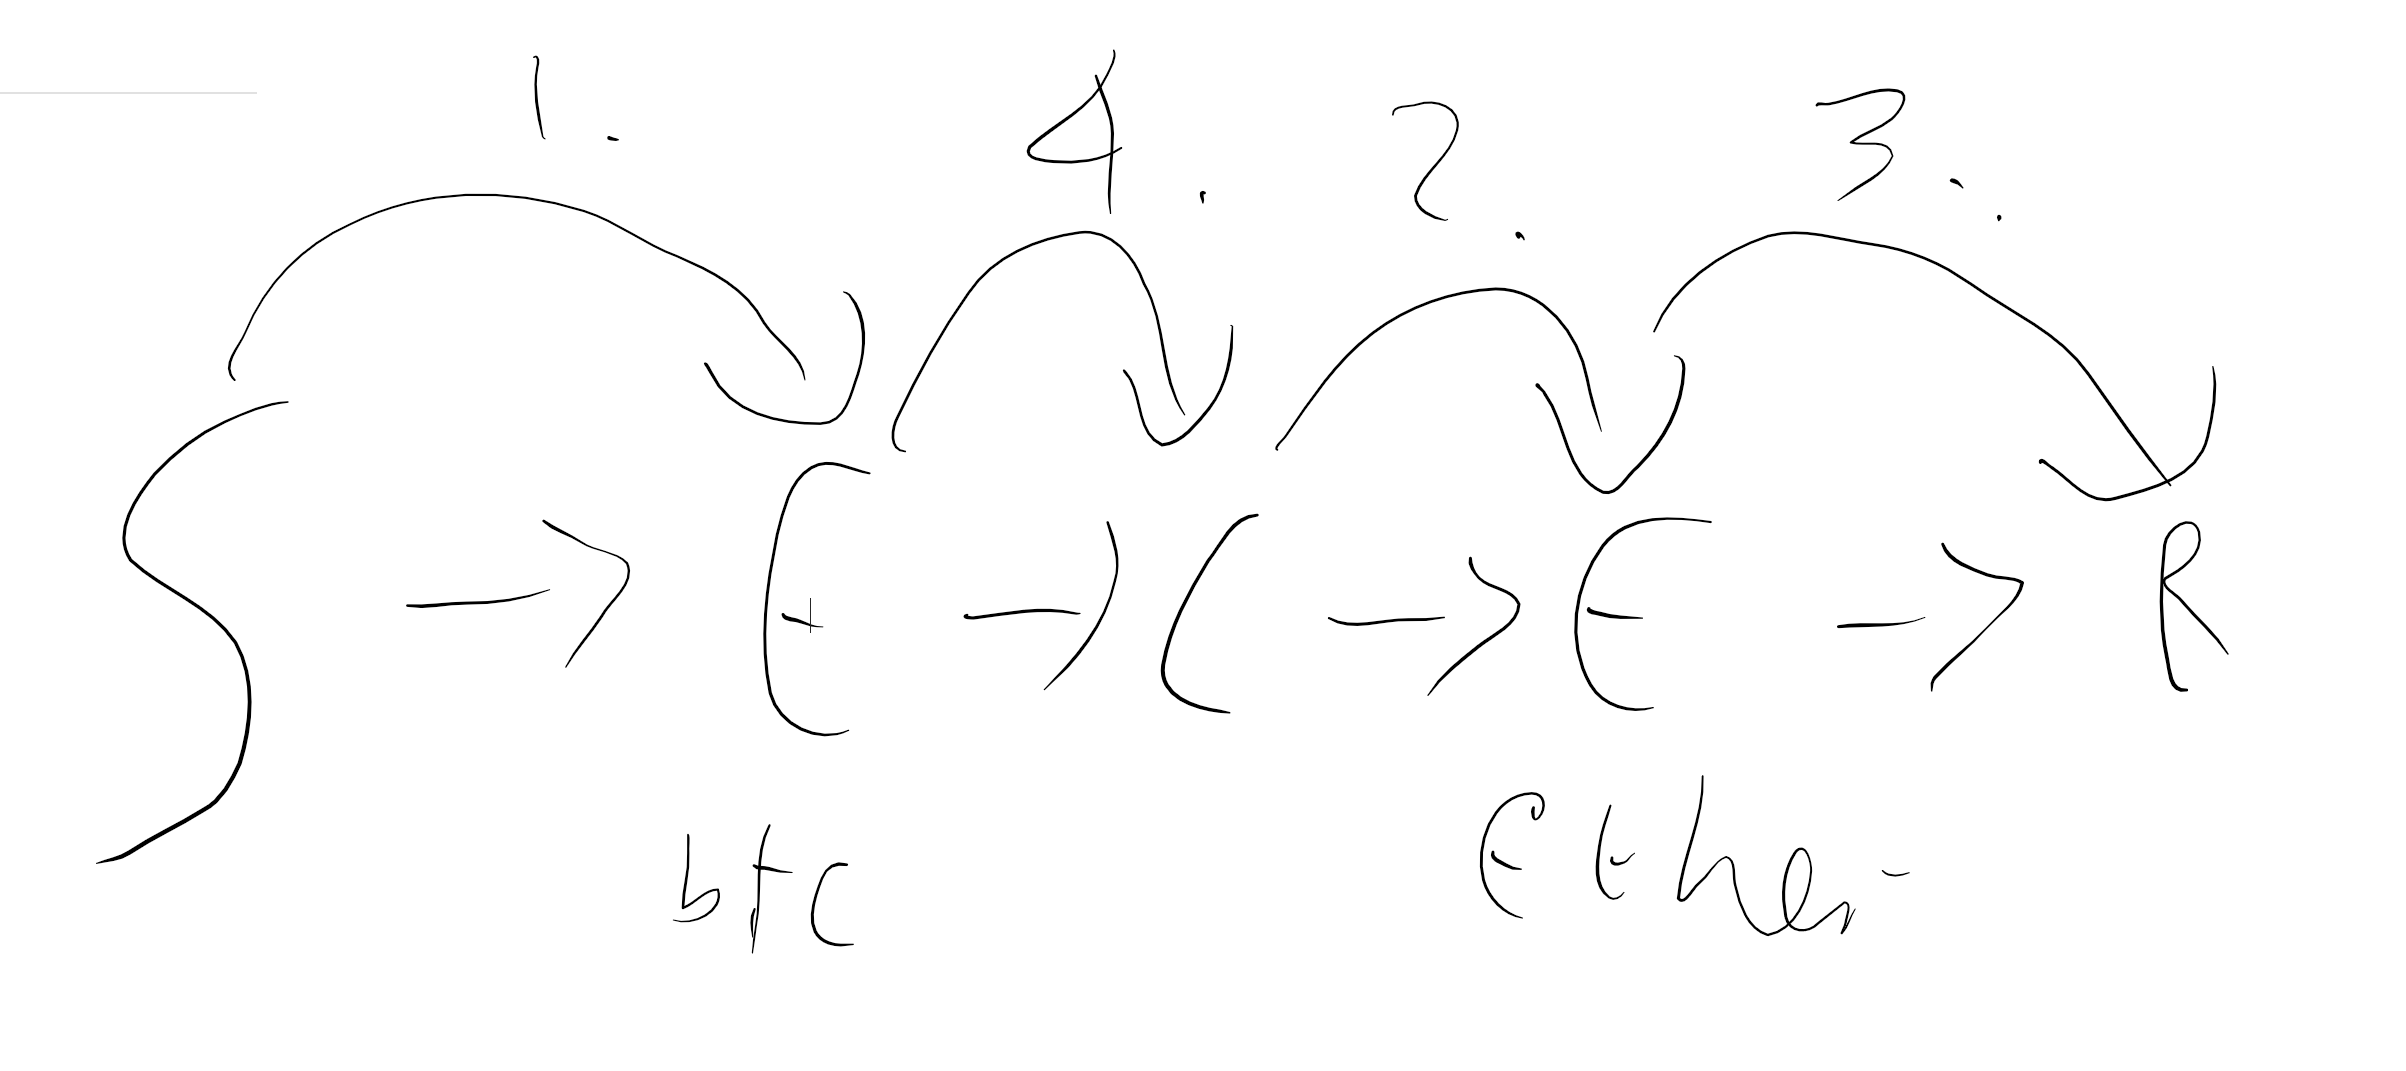 1. 4. 2. 3.
S → E → C → E → R
btc Ether